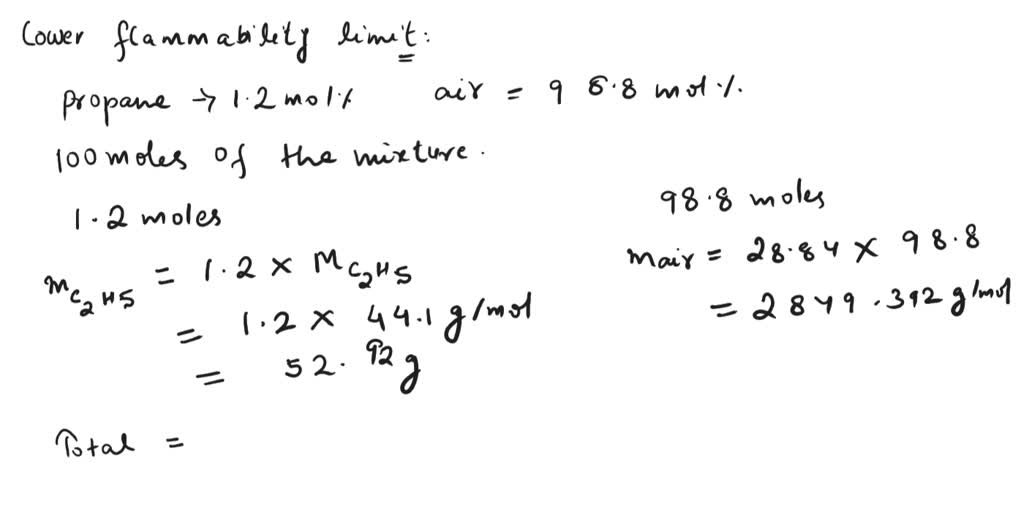 Lower flammability limit:
propane → 1.2 mol% air = 98.8 mol%.
100 moles of the mixture.
1.2 moles
98.8 moles
mC2H5 = 1.2 × MC2H5
= 1.2 × 44.1 g/mol
= 52.92g
mair = 28.84 × 98.8
= 2849.392 g/mol
Total =